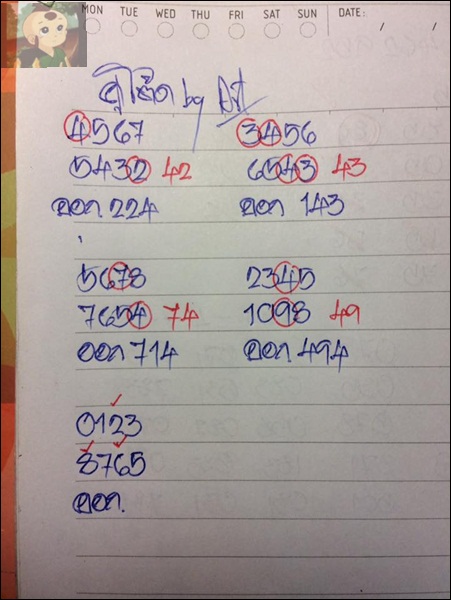 MON TUE WED THU FRI SAT SUN DATE: / /
คู่โต๊ด by Art
4567
5432 42
ออก 224
3456
6543 43
ออก 143
5678
7654 74
ออก 714
2345
1098 49
ออก 494
0123
8765
ออก.